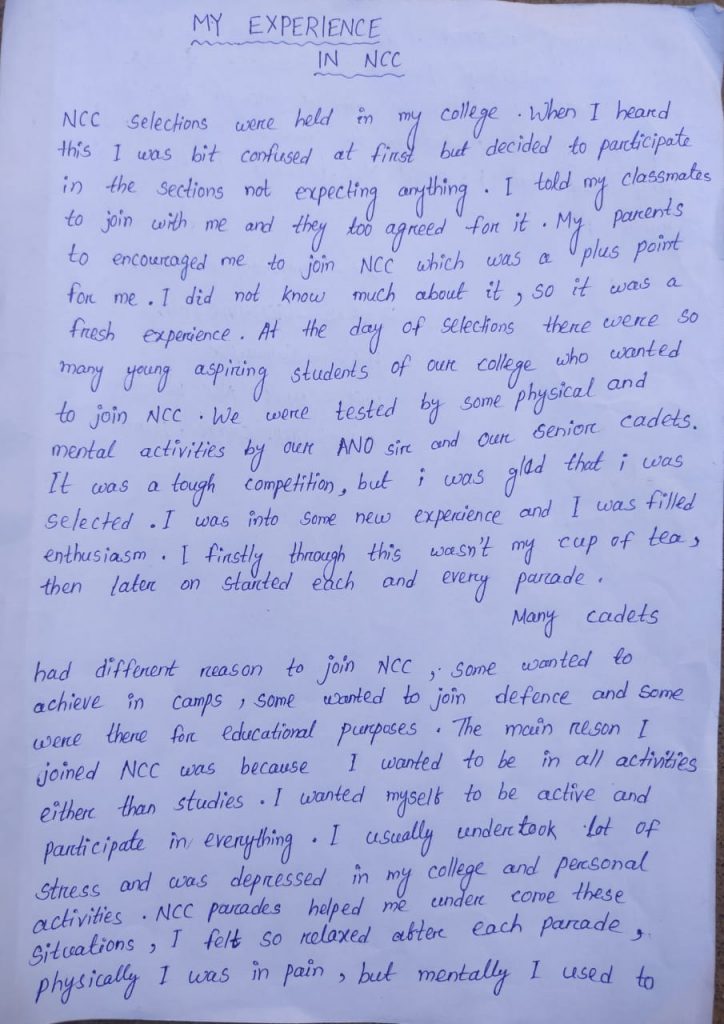 MY EXPERIENCE
IN NCC
NCC selections were held in my college. When I heard
this I was bit confused at first but decided to participate
in the sections not expecting anything. I told my classmates
to join with me and they too agreed for it. My parents
to encouraged me to join NCC which was a plus point
for me. I did not know much about it, so it was a
fresh experience. At the day of selections there were so
many young aspiring students of our college who wanted
to join NCC. We were tested by some physical and
mental activities by our ANO sir and our senior cadets.
It was a tough competition, but i was glad that i was
selected. I was into some new experience and I was filled
enthusiasm. I firstly through this wasn't my cup of tea,
then later on started each and every parade.
Many cadets
had different reason to join NCC, some wanted to
achieve in camps, some wanted to join defence and some
were there for educational purposes. The main reson I
joined NCC was because I wanted to be in all activities
either than studies. I wanted myself to be active and
participate in everything. I usually undertook lot of
stress and was depressed in my college and personal
activities. NCC parades helped me under come these
situations, I felt so relaxed after each parade,
physically I was in pain, but mentally I used to